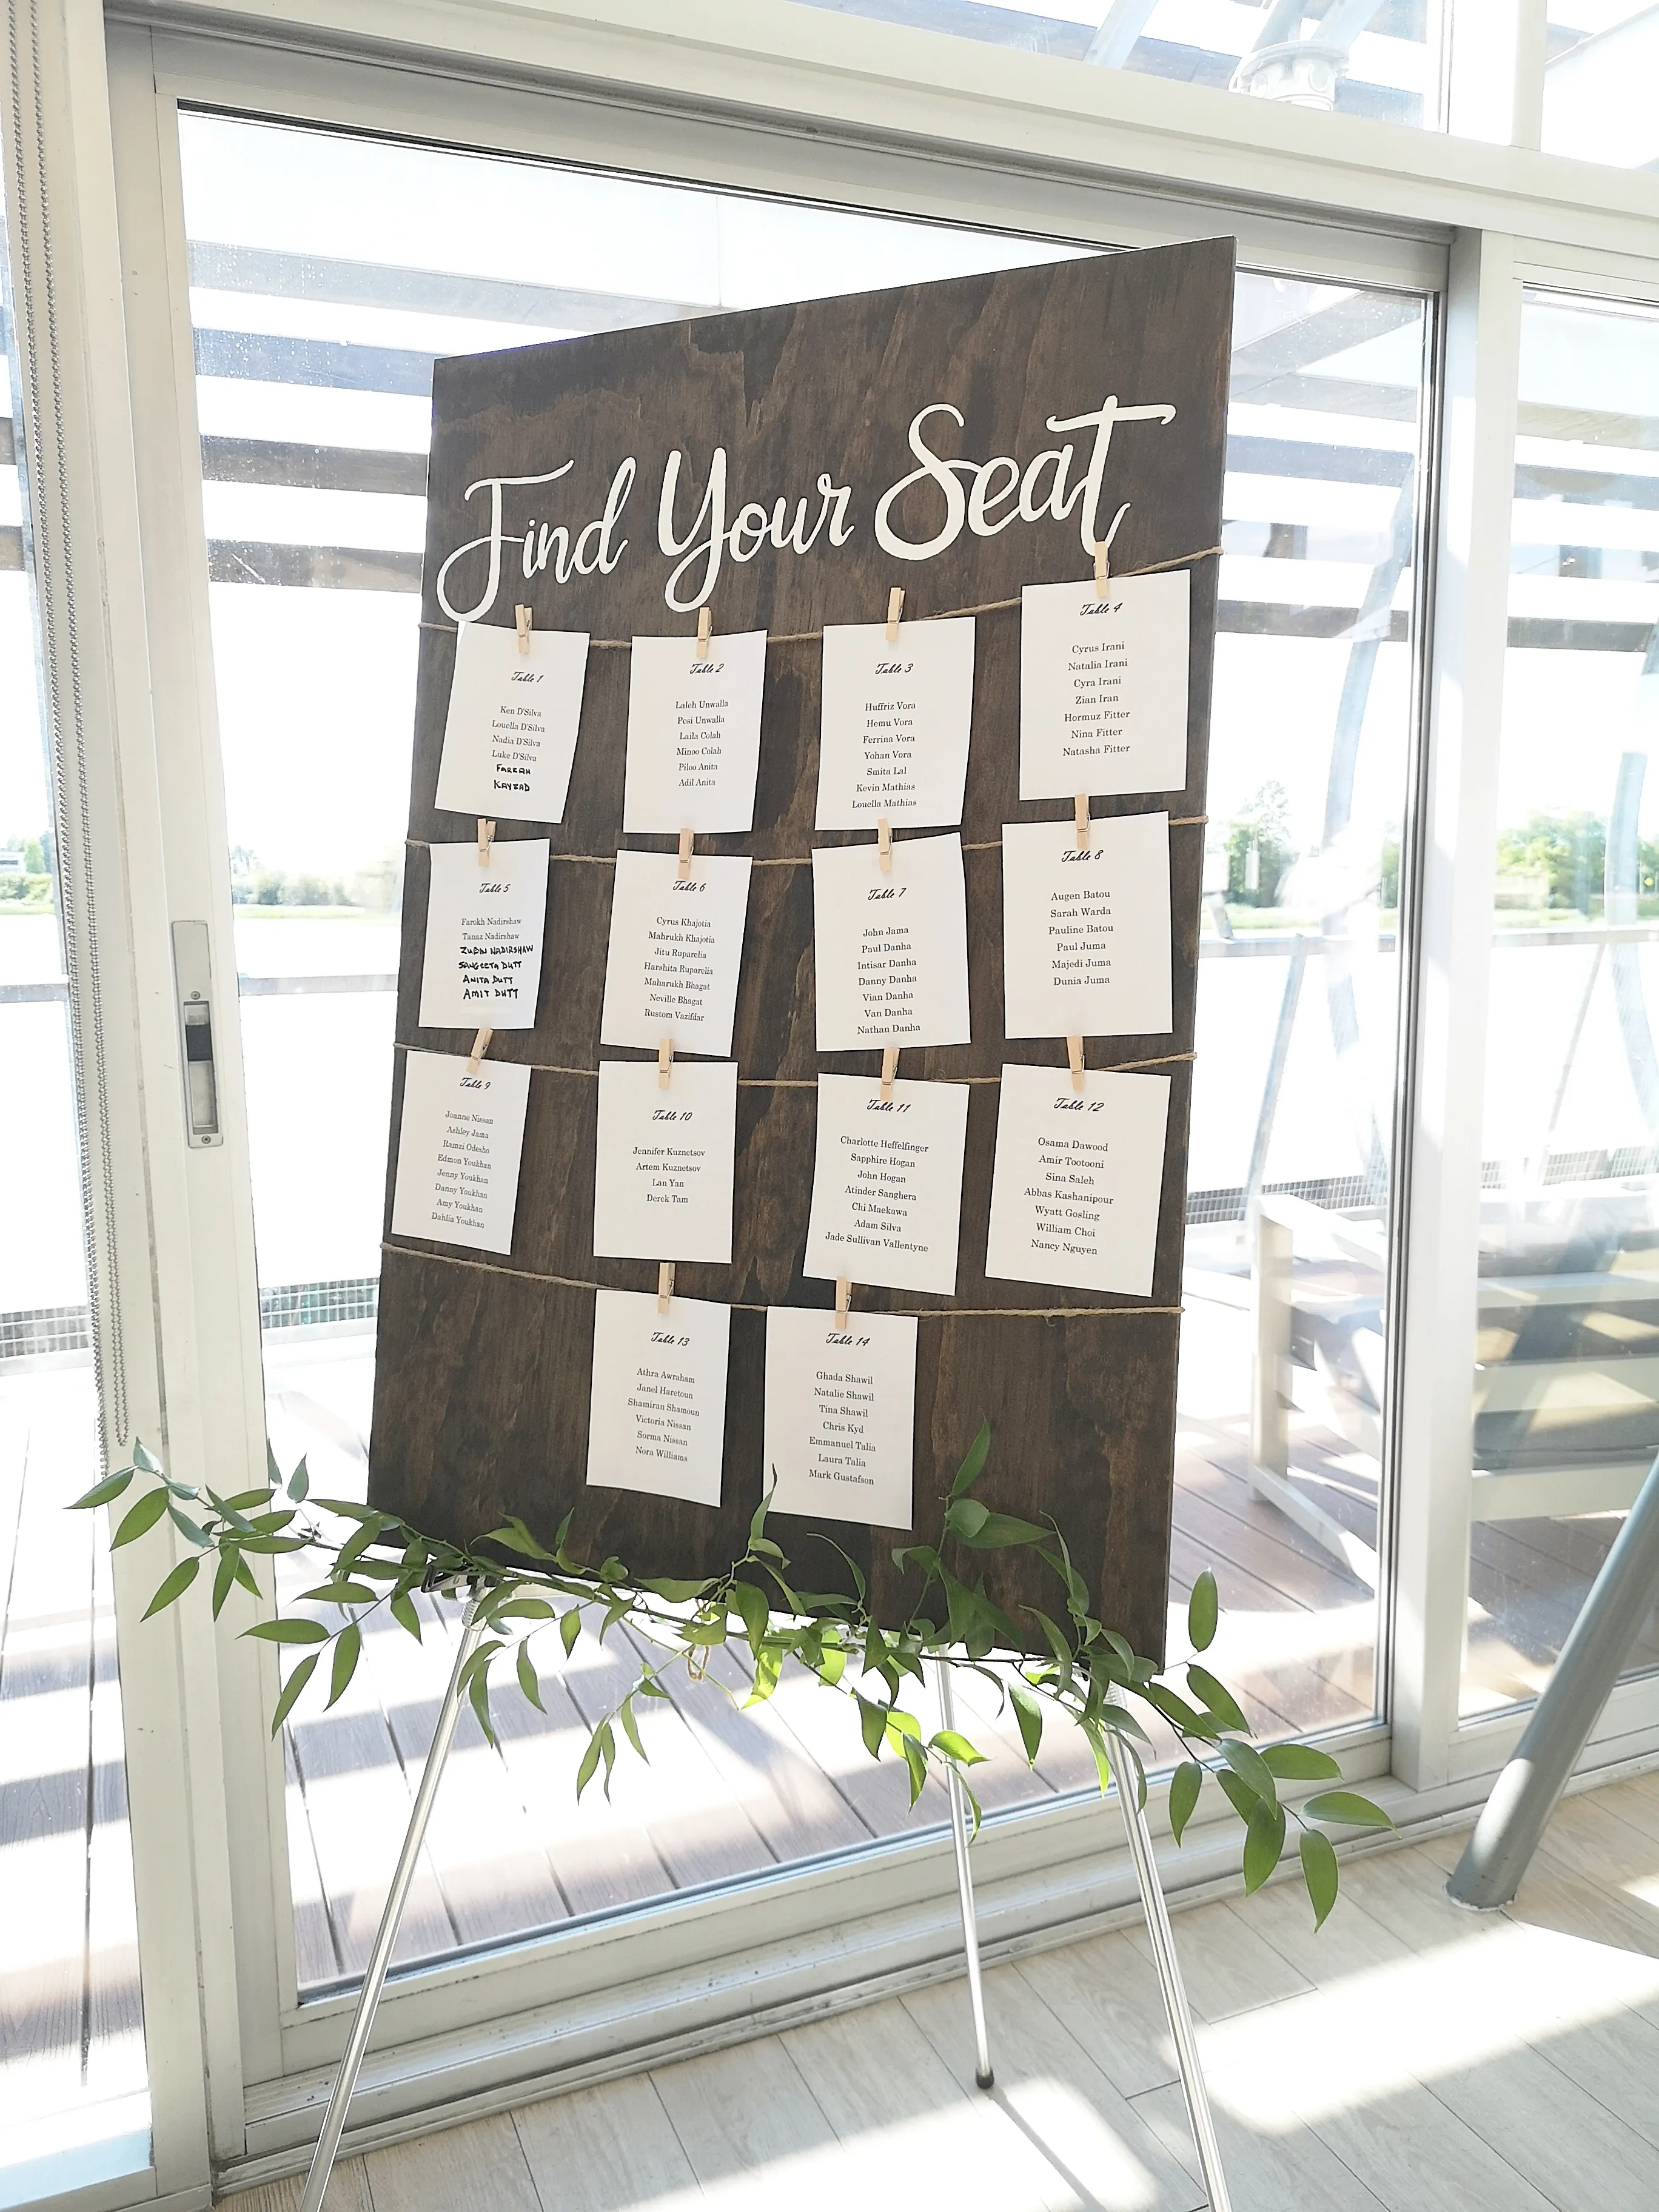 Find Your Seat
Table 1
Ken D'Silva
Louella D'Silva
Nadia D'Silva
Luke D'Silva
FAREAH
KAYZAD
Table 2
Laleh Unwalla
Pesi Unwalla
Laila Colah
Minoo Colah
Piloo Anita
Adil Anita
Table 3
Huffriz Vora
Hemu Vora
Ferrina Vora
Yohan Vora
Smita Lal
Kevin Mathias
Louella Mathias
Table 4
Cyrus Irani
Natalia Irani
Cyra Irani
Zian Iran
Hormuz Fitter
Nina Fitter
Natasha Fitter
Table 5
Farokh Nadirshaw
Tanaz Nadirshaw
ZUBIN NADIRSHAW
SANGEETA DUTT
ANITA DUTT
AMIT DUTT
Table 6
Cyrus Khajotia
Mahrukh Khajotia
Jitu Ruparelia
Harshita Ruparelia
Maharukh Bhagat
Neville Bhagat
Rustom Vazifdar
Table 7
John Jama
Paul Danha
Intisar Danha
Danny Danha
Vian Danha
Van Danha
Nathan Danha
Table 8
Augen Batou
Sarah Warda
Pauline Batou
Paul Juma
Majedi Juma
Dunia Juma
Table 9
Joanne Nissan
Ashley Jama
Ramzi Odesho
Edmon Youkhan
Jenny Youkhan
Danny Youkhan
Amy Youkhan
Dahlia Youkhan
Table 10
Jennifer Kuznetsov
Artem Kuznetsov
Lan Yan
Derek Tam
Table 11
Charlotte Heffelfinger
Sapphire Hogan
John Hogan
Atinder Sanghera
Chi Maekawa
Adam Silva
Jade Sullivan Vallentyne
Table 12
Osama Dawood
Amir Tootooni
Sina Saleh
Abbas Kashanipour
Wyatt Gosling
William Choi
Nancy Nguyen
Table 13
Athra Awraham
Janel Haretoun
Shamiran Shamoun
Victoria Nissan
Sorma Nissan
Nora Williams
Table 14
Ghada Shawil
Natalie Shawil
Tina Shawil
Chris Kyd
Emmanuel Talia
Laura Talia
Mark Gustafson